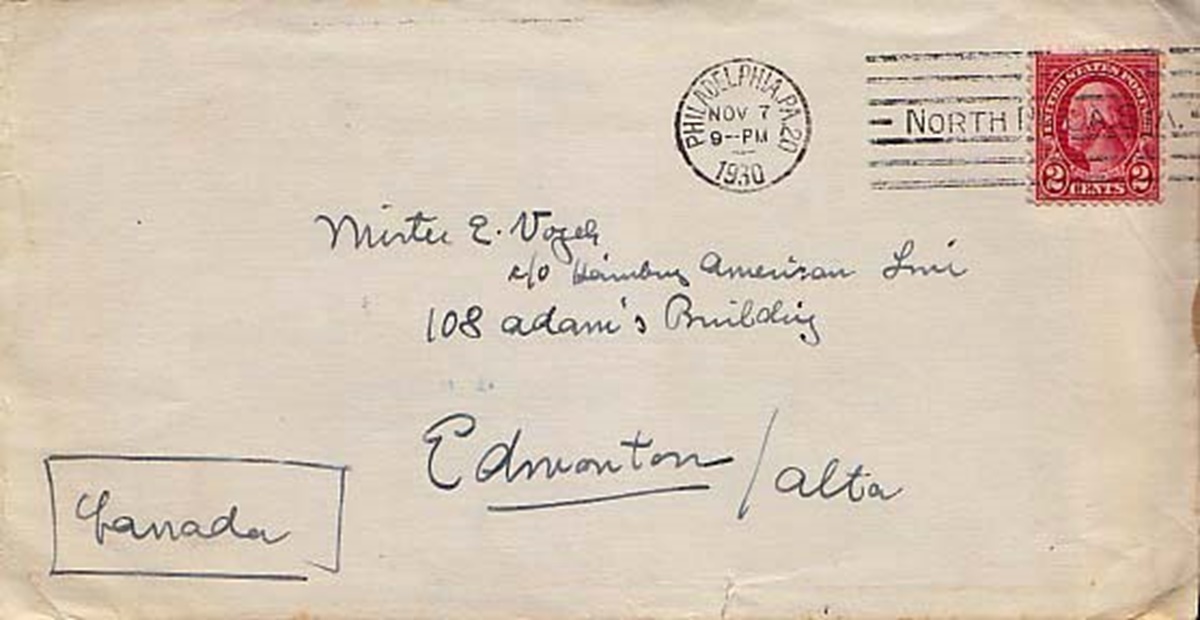 PHILADELPHIA, PA. 20
NOV 7
9--PM
1930
NORTH
UNITED STATES POSTAGE
2 CENTS 2
Mister E. Vogel
c/o Hamburg American Line
108 adam's Building
Edmonton / alta
Canada